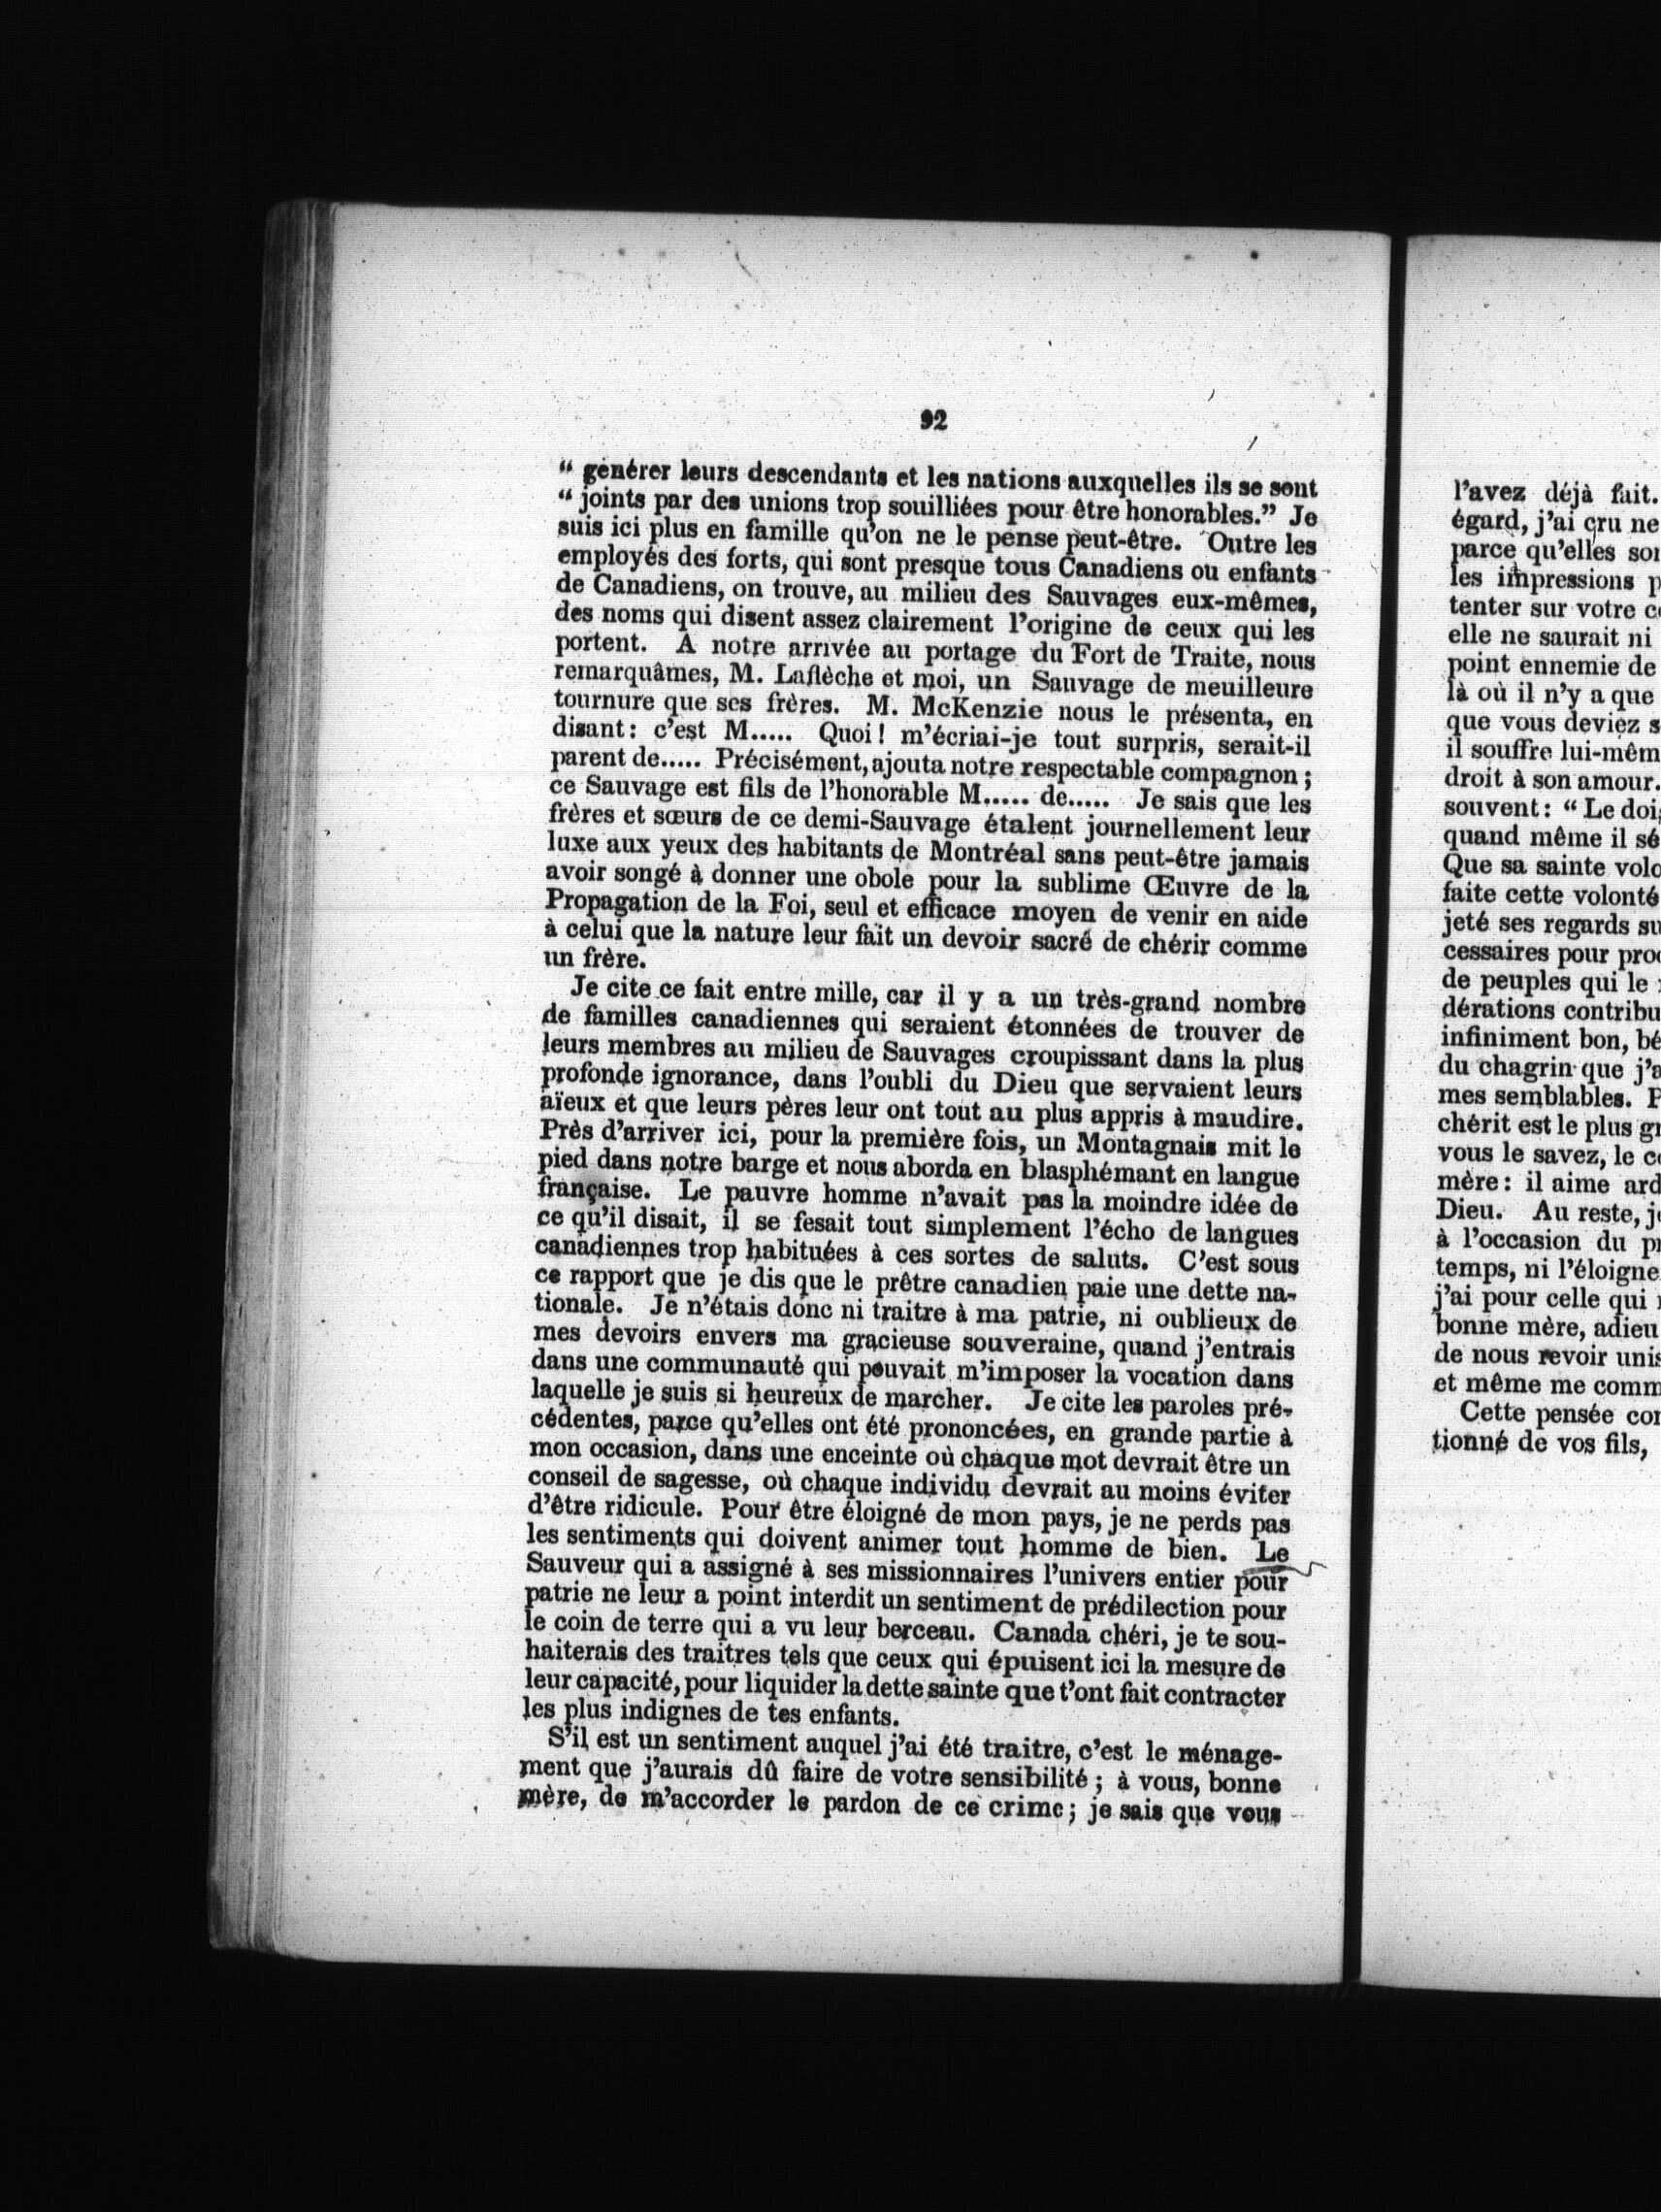 92
“ générer leurs descendants et les nations auxquelles ils se sont
“ joints par des unions trop souilliées pour être honorables.” Je
suis ici plus en famille qu’on ne le pense peut-être. Outre les
employés des forts, qui sont presque tous Canadiens ou enfants
de Canadiens, on trouve, au milieu des Sauvages eux-mêmes,
des noms qui disent assez clairement l’origine de ceux qui les
portent. A notre arrivée au portage du Fort de Traite, nous
remarquâmes, M. Laflèche et moi, un Sauvage de meuilleure
tournure que ses frères. M. McKenzie nous le présenta, en
disant: c’est M..... Quoi! m’écriai-je tout surpris, serait-il
parent de..... Précisément, ajouta notre respectable compagnon;
ce Sauvage est fils de l’honorable M..... de..... Je sais que les
frères et sœurs de ce demi-Sauvage étalent journellement leur
luxe aux yeux des habitants de Montréal sans peut-être jamais
avoir songé à donner une obole pour la sublime Œuvre de la
Propagation de la Foi, seul et efficace moyen de venir en aide
à celui que la nature leur fait un devoir sacré de chérir comme
un frère.
Je cite ce fait entre mille, car il y a un très-grand nombre
de familles canadiennes qui seraient étonnées de trouver de
leurs membres au milieu de Sauvages croupissant dans la plus
profonde ignorance, dans l’oubli du Dieu que servaient leurs
aïeux et que leurs pères leur ont tout au plus appris à maudire.
Près d’arriver ici, pour la première fois, un Montagnais mit le
pied dans notre barge et nous aborda en blasphémant en langue
française. Le pauvre homme n’avait pas la moindre idée de
ce qu’il disait, il se fesait tout simplement l’écho de langues
canadiennes trop habituées à ces sortes de saluts. C’est sous
ce rapport que je dis que le prêtre canadien paie une dette na-
tionale. Je n’étais donc ni traitre à ma patrie, ni oublieux de
mes devoirs envers ma gracieuse souveraine, quand j’entrais
dans une communauté qui pouvait m’imposer la vocation dans
laquelle je suis si heureux de marcher. Je cite les paroles pré-
cédentes, parce qu’elles ont été prononcées, en grande partie à
mon occasion, dans une enceinte où chaque mot devrait être un
conseil de sagesse, où chaque individu devrait au moins éviter
d’être ridicule. Pour être éloigné de mon pays, je ne perds pas
les sentiments qui doivent animer tout homme de bien. Le
Sauveur qui a assigné à ses missionnaires l’univers entier pour
patrie ne leur a point interdit un sentiment de prédilection pour
le coin de terre qui a vu leur berceau. Canada chéri, je te sou-
haiterais des traitres tels que ceux qui épuisent ici la mesure de
leur capacité, pour liquider la dette sainte que t’ont fait contracter
les plus indignes de tes enfants.
S’il est un sentiment auquel j’ai été traitre, c’est le ménage-
ment que j’aurais dû faire de votre sensibilité; à vous, bonne
mère, de m’accorder le pardon de ce crime; je sais que vous
l’avez déjà fait.
égard, j’ai cru ne
parce qu’elles
les impressions
tenter sur votre
elle ne saurait ni
point ennemie de
là où il n’y a que
que vous deviez
il souffre
droit à son amour.
souvent: “ Le
quand même il
Que sa sainte
faite cette volonté
jeté ses regards
cessaires pour
de peuples qui le
dérations
infiniment bon,
du chagrin que
mes semblables.
chérit est le plus
vous le savez, le
mère: il aime
Dieu. Au reste,
à l’occasion du
temps, ni
j’ai pour celle qui
bonne mère, adieu
de nous revoir
et même me
Cette pensée
tionné de vos fils,